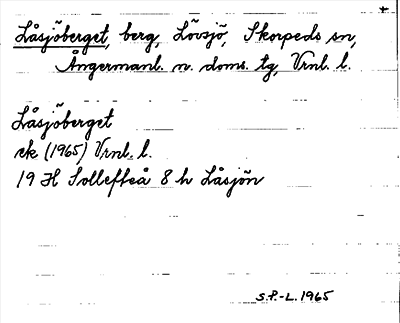 Låsjöberget, berg, Lövsjö, Skorpeds sn,
Ångermanl. n. doms. tg, Vrnl. l.
Låsjöberget
ek (1965) Vrnl. l.
19 H Sollefteå 8 h Låsjön
S.P.-L. 1965